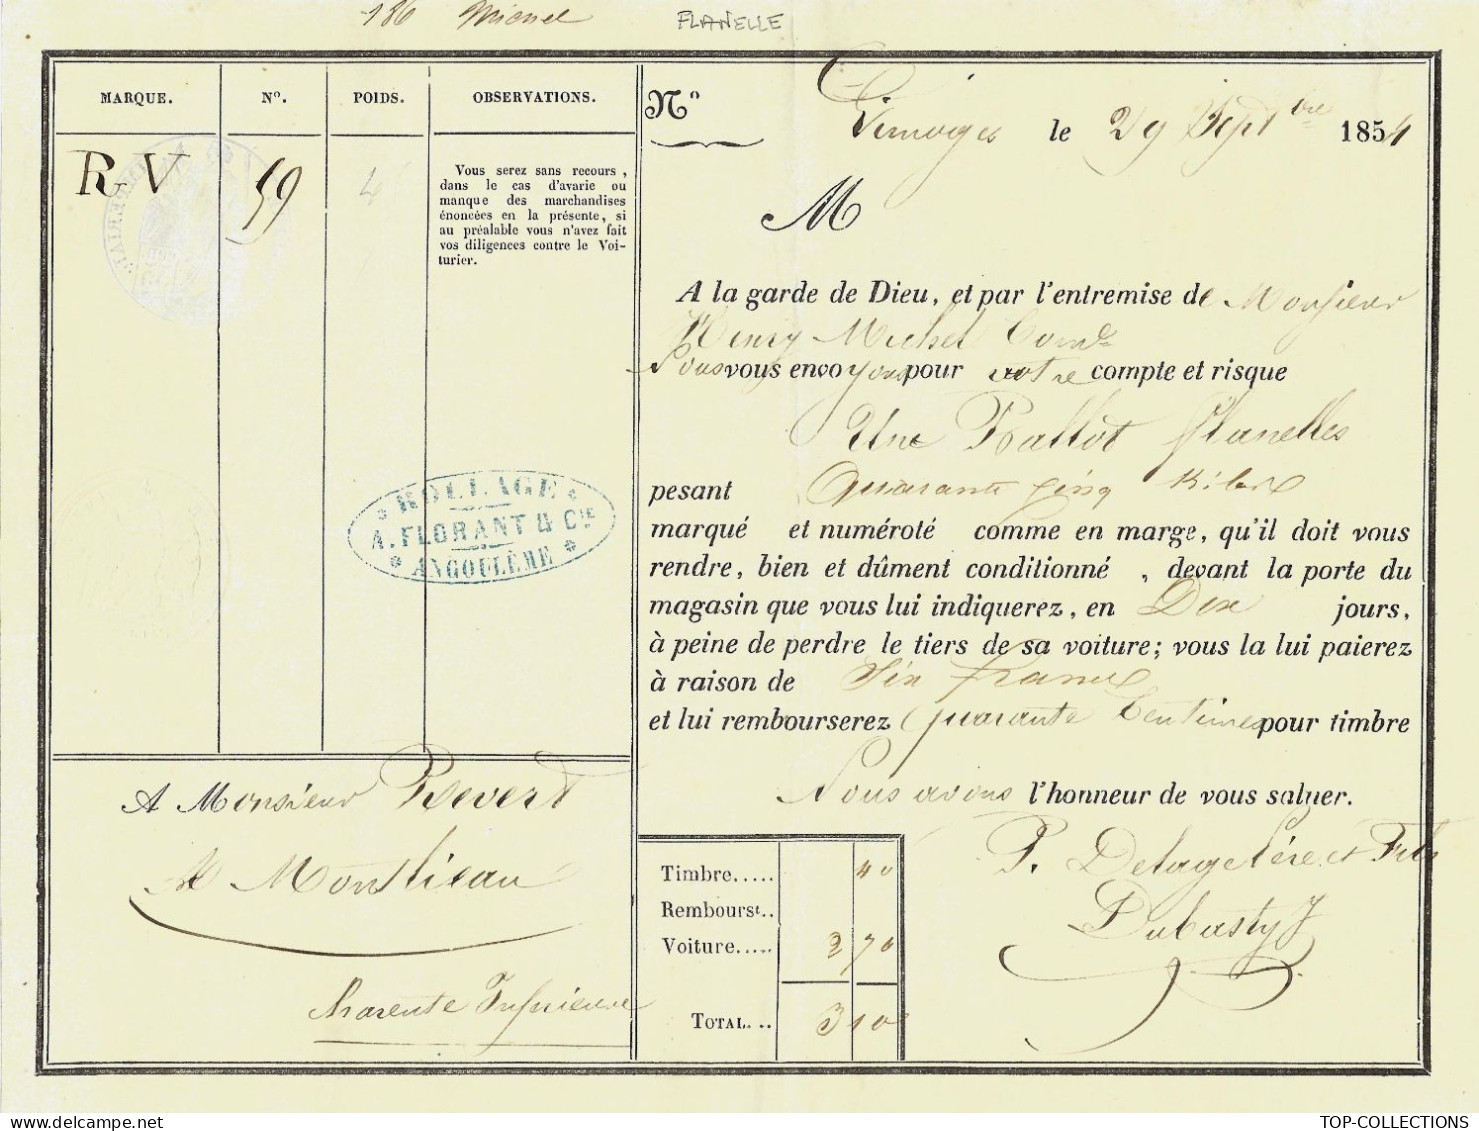 186 Michel FLANELLE
MARQUE. N°. POIDS. OBSERVATIONS.
R V 59 4
Vous serez sans recours,
dans le cas d'avarie ou
manque des marchandises
énoncées en la présente, si
au préalable vous n'avez fait
vos diligences contre le Voi-
turier.
ROULAGE
A. FLORANT & CIE
ANGOULÊME
A Monsieur Revert
à Montlieau
Charente Inférieure
N° Limoges le 29 Sept bre 1854
M
A la garde de Dieu, et par l'entremise de Monsieur
Henry Michel Comd.
Nous vous envoyons pour votre compte et risque
Une Ballot Flanelles
pesant Quarante Cinq Kilos
marqué et numéroté comme en marge, qu'il doit vous
rendre, bien et dûment conditionné, devant la porte du
magasin que vous lui indiquerez, en Dix jours,
à peine de perdre le tiers de sa voiture; vous la lui paierez
à raison de Six Francs
et lui rembourserez Quarante Centimes pour timbre
Nous avons l'honneur de vous saluer.
P. Delage Père et Fils
Dubasty J
Timbre..... 40
Rembourst..
Voiture..... 2 70
TOTAL... 3 10
TOP-COLLECTIONS